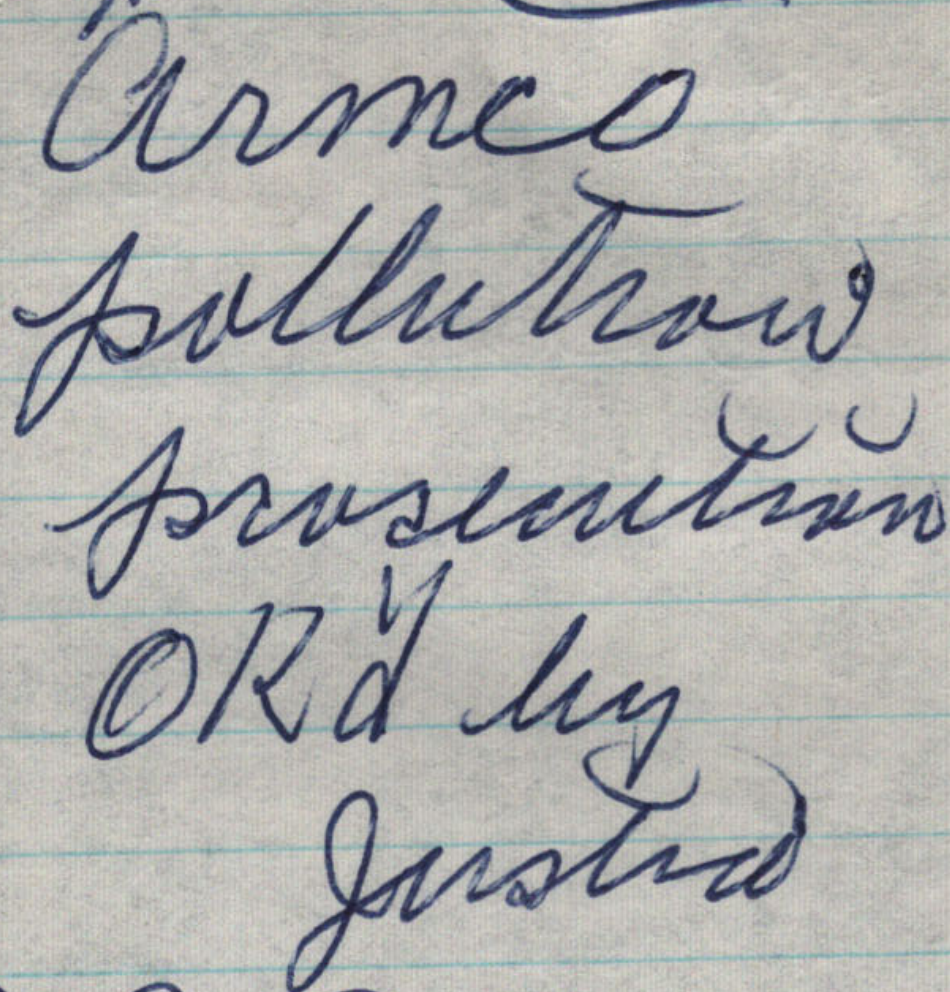 Armco
pollution
prosecution
OK'd by
Justice